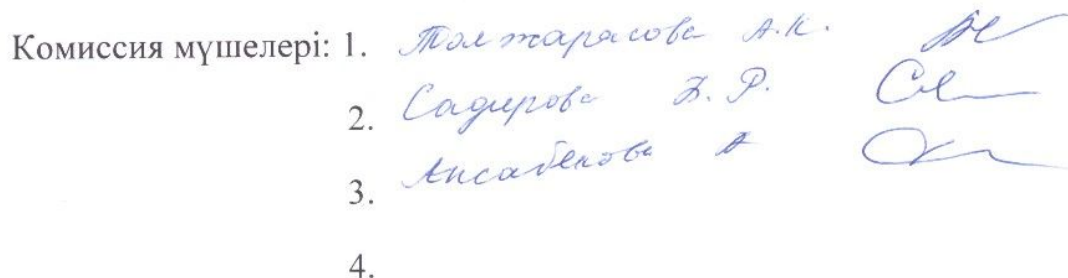 Комиссия мүшелері: 1. Толжарасова А.К.
2. Садирова З. Р.
3. Аксабекова А
4.